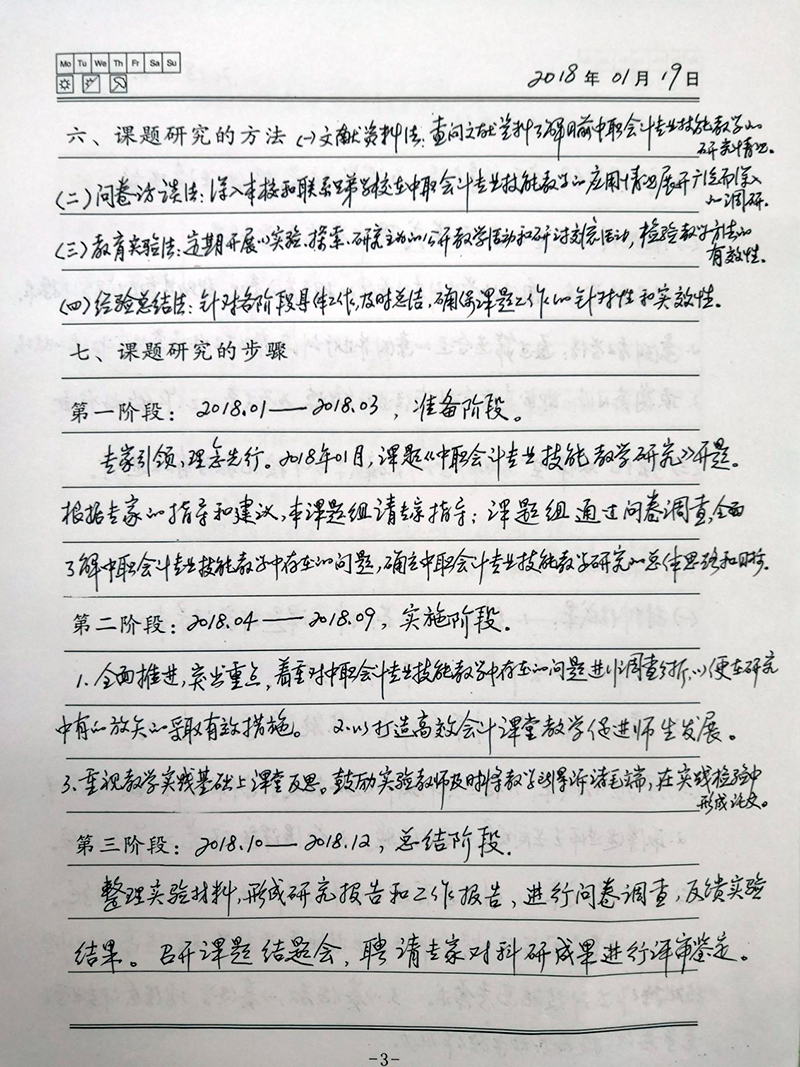 Mo Tu We Th Fr Sa Su
2018年01月19日
六、课题研究的方法 (一)文献资料法:查阅文献资料了解目前中职会计专业技能教学的
研究情况。
(二)问卷访谈法:深入本校和联系兄弟学校在中职会计专业技能教学的应用情况展开广泛而深入
的调研。
(三)教育实验法:定期开展以实验、探索、研究为主的公开教学活动和研讨交流活动,检验教学方法的
有效性。
(四)经验总结法:针对各阶段具体工作,及时总结,确保课题工作的针对性和实效性。
七、课题研究的步骤
第一阶段:2018.01——2018.03,准备阶段。
专家引领,理念先行。2018年01月,课题《中职会计专业技能教学研究》开题。
根据专家的指导和建议,本课题组请专家指导;课题组通过问卷调查,全面
了解中职会计专业技能教学中存在的问题,确立中职会计专业技能教学研究的总体思路和目标。
第二阶段:2018.04——2018.09,实施阶段.
1.全面推进,突出重点,着重对中职会计专业技能教学中存在的问题进行调查分析,以便在研究
中有的放矢的采取有效措施。 2.以打造高效会计课堂教学促进师生发展。
3.重视教学实践基础上课堂反思。鼓励实验教师及时将教学所得诉诸笔端,在实践检验中
形成论文。
第三阶段:2018.10——2018.12,总结阶段.
整理实验材料,形成研究报告和工作报告、进行问卷调查,反馈实验
结果。召开课题结题会,聘请专家对科研成果进行评审鉴定。
-3-